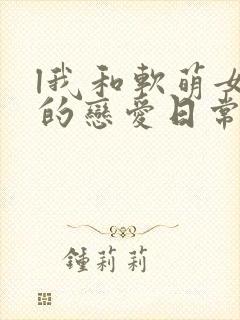 我和軟萌女
的戀愛日常
鍾莉莉